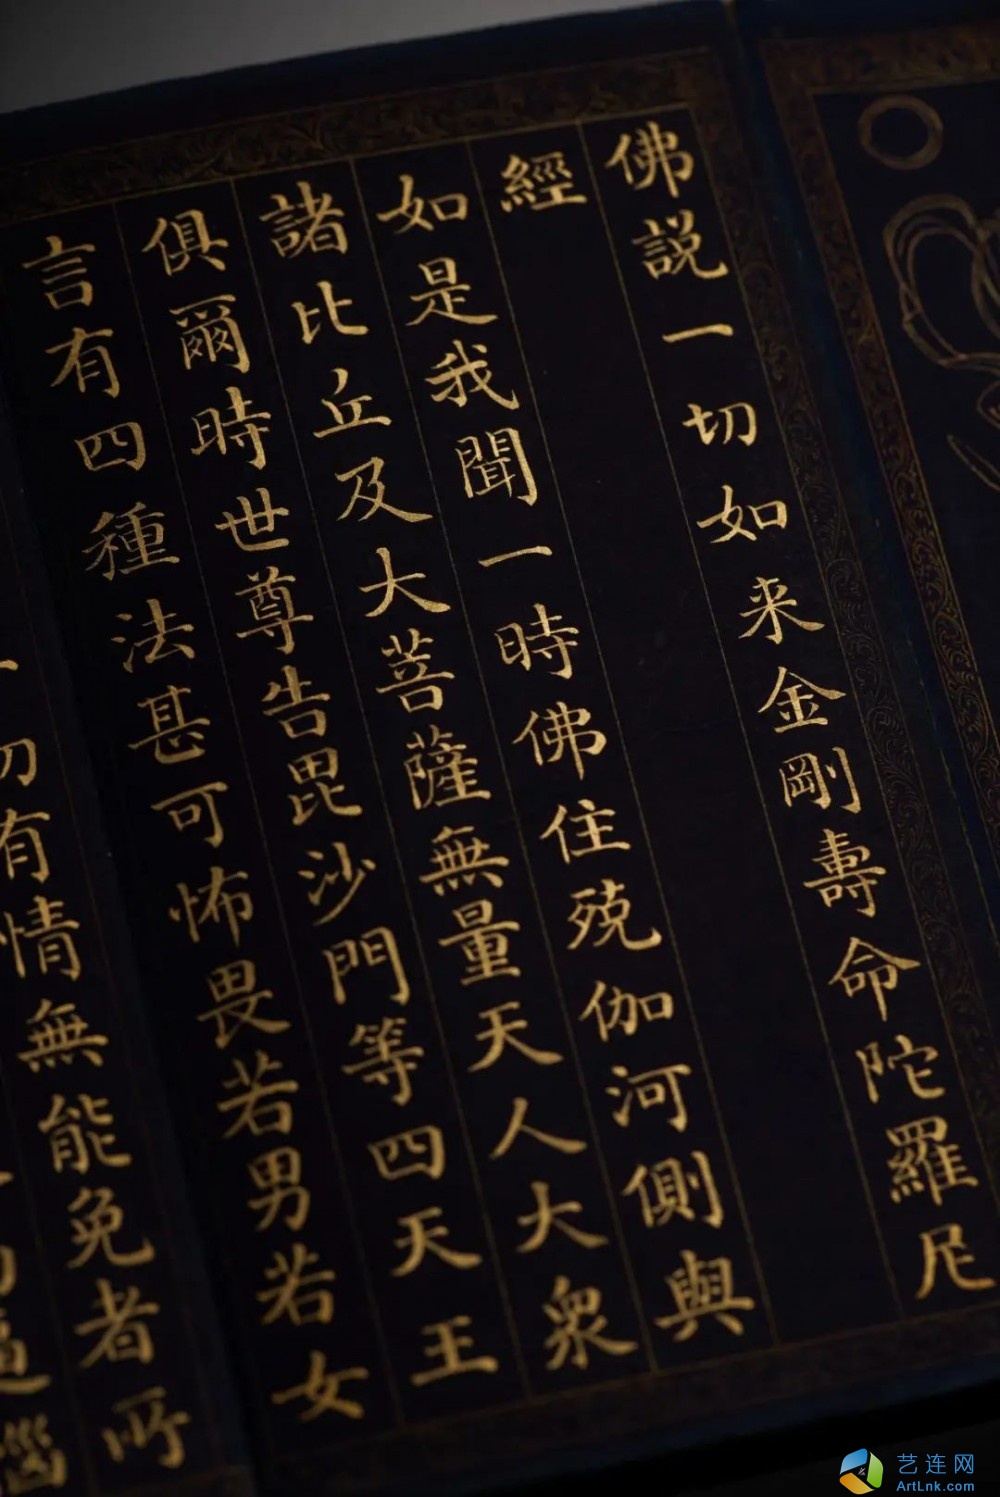 佛説一切如来金剛壽命陀羅尼
經
如是我聞一時佛住殑伽河側與
諸比丘及大菩薩無量天人大衆
俱爾時世尊告毘沙門等四天王
言有四種法甚可怖畏若男若女
切有情無能免者所
艺连网
ArtLnk.com